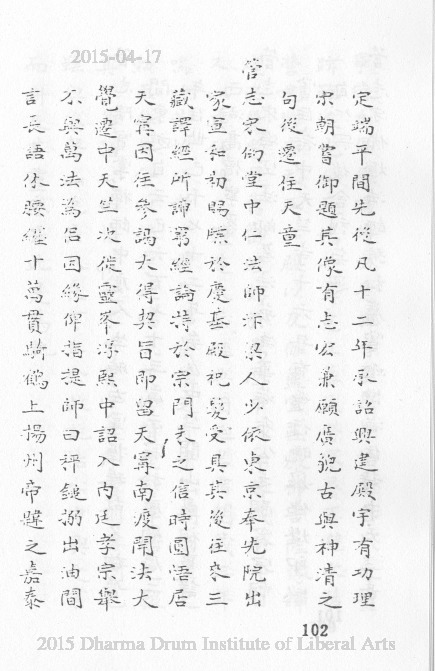 2015-04-17
定端平間先後凡十二年承詔興建殿宇有功理
宋朝嘗御題其像有志宏兼願廣貌古與神清之
句後遷住天童
管志宋仰堂中仁法師汴梁人少依東京奉先院出
家宣和初賜牒於慶基殿祝髮受具其後往來三
藏譯經所諦窮經論特於宗門未之信時圓悟居
天寧因往參謁大得契旨即留天寧南渡開法大
覺遷中天竺次徙靈峯淳熙中詔入內廷孝宗舉
不與萬法為侶因緣俾指提師曰秤鎚搦出油間
言長語休腰纏十萬貫騎鶴上揚州帝韙之嘉泰
102
2015 Dharma Drum Institute of Liberal Arts